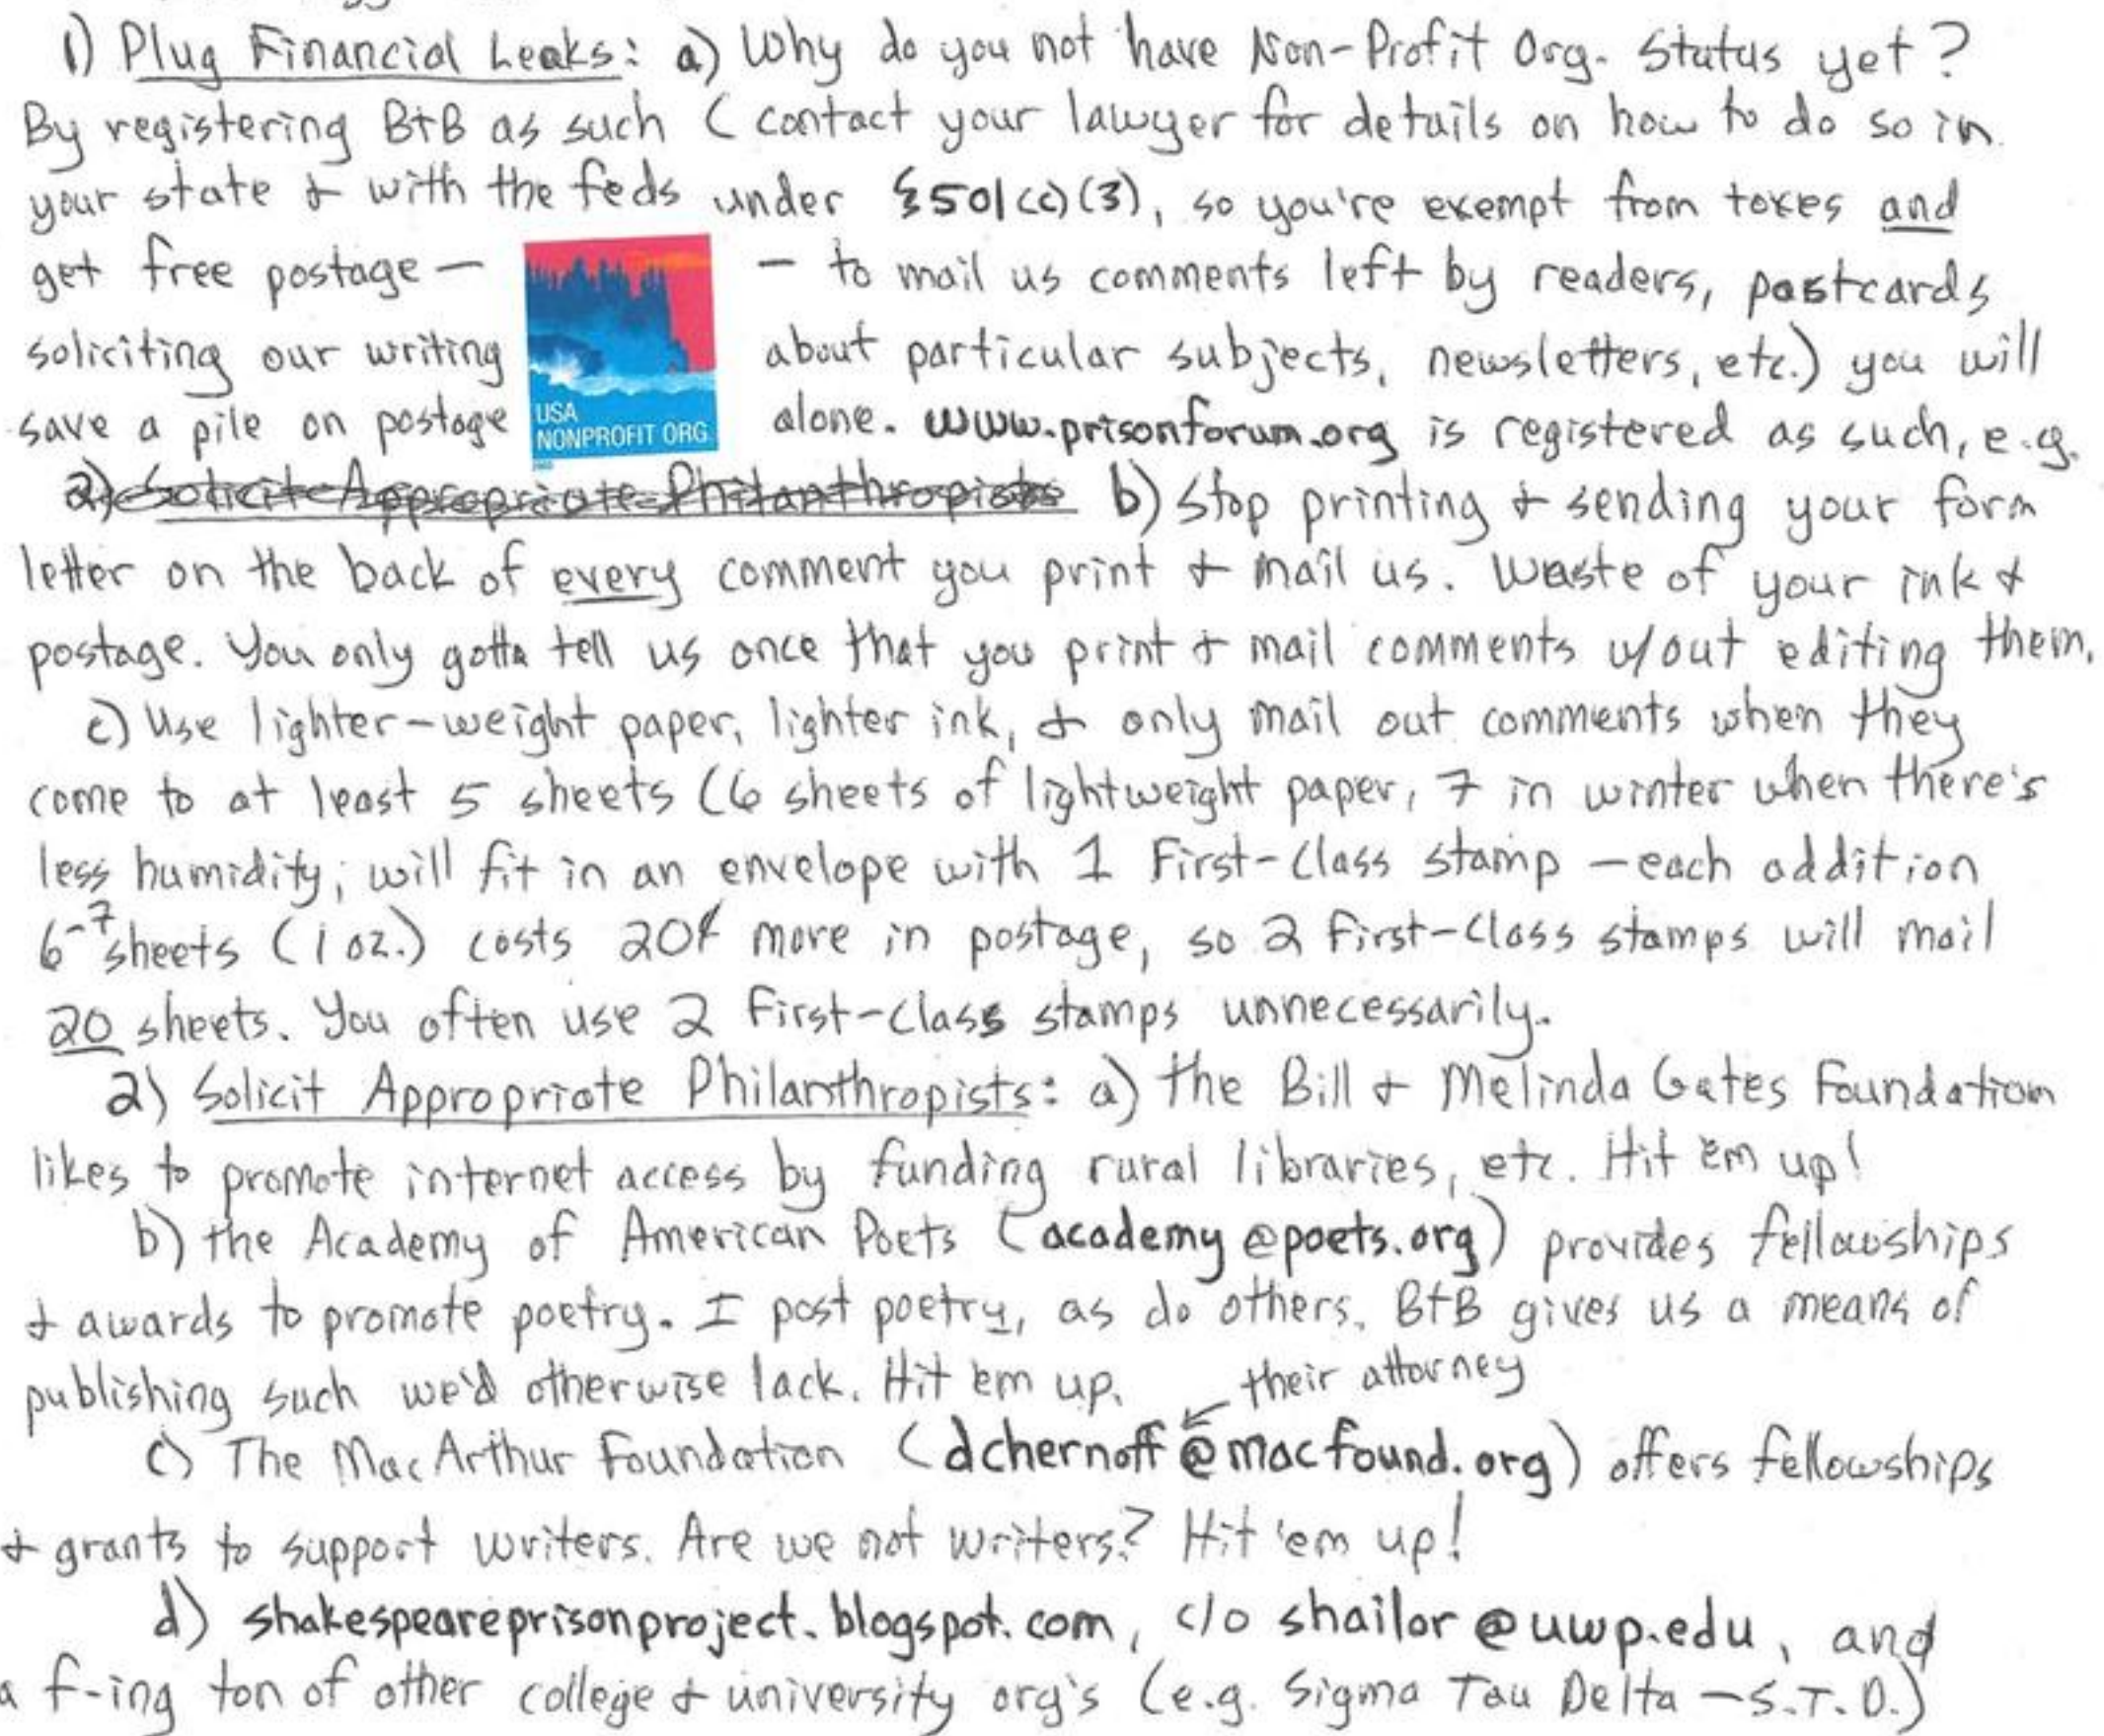 1) Plug Financial Leaks: a) Why do you not have Non-Profit Org. Status yet?
By registering BtB as such (contact your lawyer for details on how to do so in
your state & with the feds under §501(c)(3), so you're exempt from taxes and
get free postage— — to mail us comments left by readers, postcards
soliciting our writing about particular subjects, newsletters, etc.) you will
save a pile on postage alone. www.prisonforum.org is registered as such, e.g.
USA
NONPROFIT ORG
2) Solicit Appropriate Philanthropists b) Stop printing & sending your form
letter on the back of every comment you print & mail us. Waste of your ink &
postage. You only gotta tell us once that you print & mail comments w/out editing them.
c) Use lighter-weight paper, lighter ink, & only mail out comments when they
come to at least 5 sheets (6 sheets of lightweight paper, 7 in winter when there's
less humidity, will fit in an envelope with 1 First-Class stamp —each addition
6-7 sheets (1 oz.) costs 20¢ more in postage, so 2 First-Class stamps will mail
20 sheets. You often use 2 First-Class stamps unnecessarily.
2) Solicit Appropriate Philanthropists: a) the Bill & Melinda Gates Foundation
likes to promote internet access by funding rural libraries, etc. Hit 'em up!
b) the Academy of American Poets (academy@poets.org) provides fellowships
& awards to promote poetry. I post poetry, as do others. BtB gives us a means of
publishing such we'd otherwise lack. Hit 'em up. their attorney
c) The MacArthur Foundation (dchernoff@macfound.org) offers fellowships
& grants to support writers. Are we not writers? Hit 'em up!
d) shakespeareprisonproject.blogspot.com, c/o shailor@uwp.edu, and
a f-ing ton of other college & university org's (e.g. Sigma Tau Delta —S.T.D.)